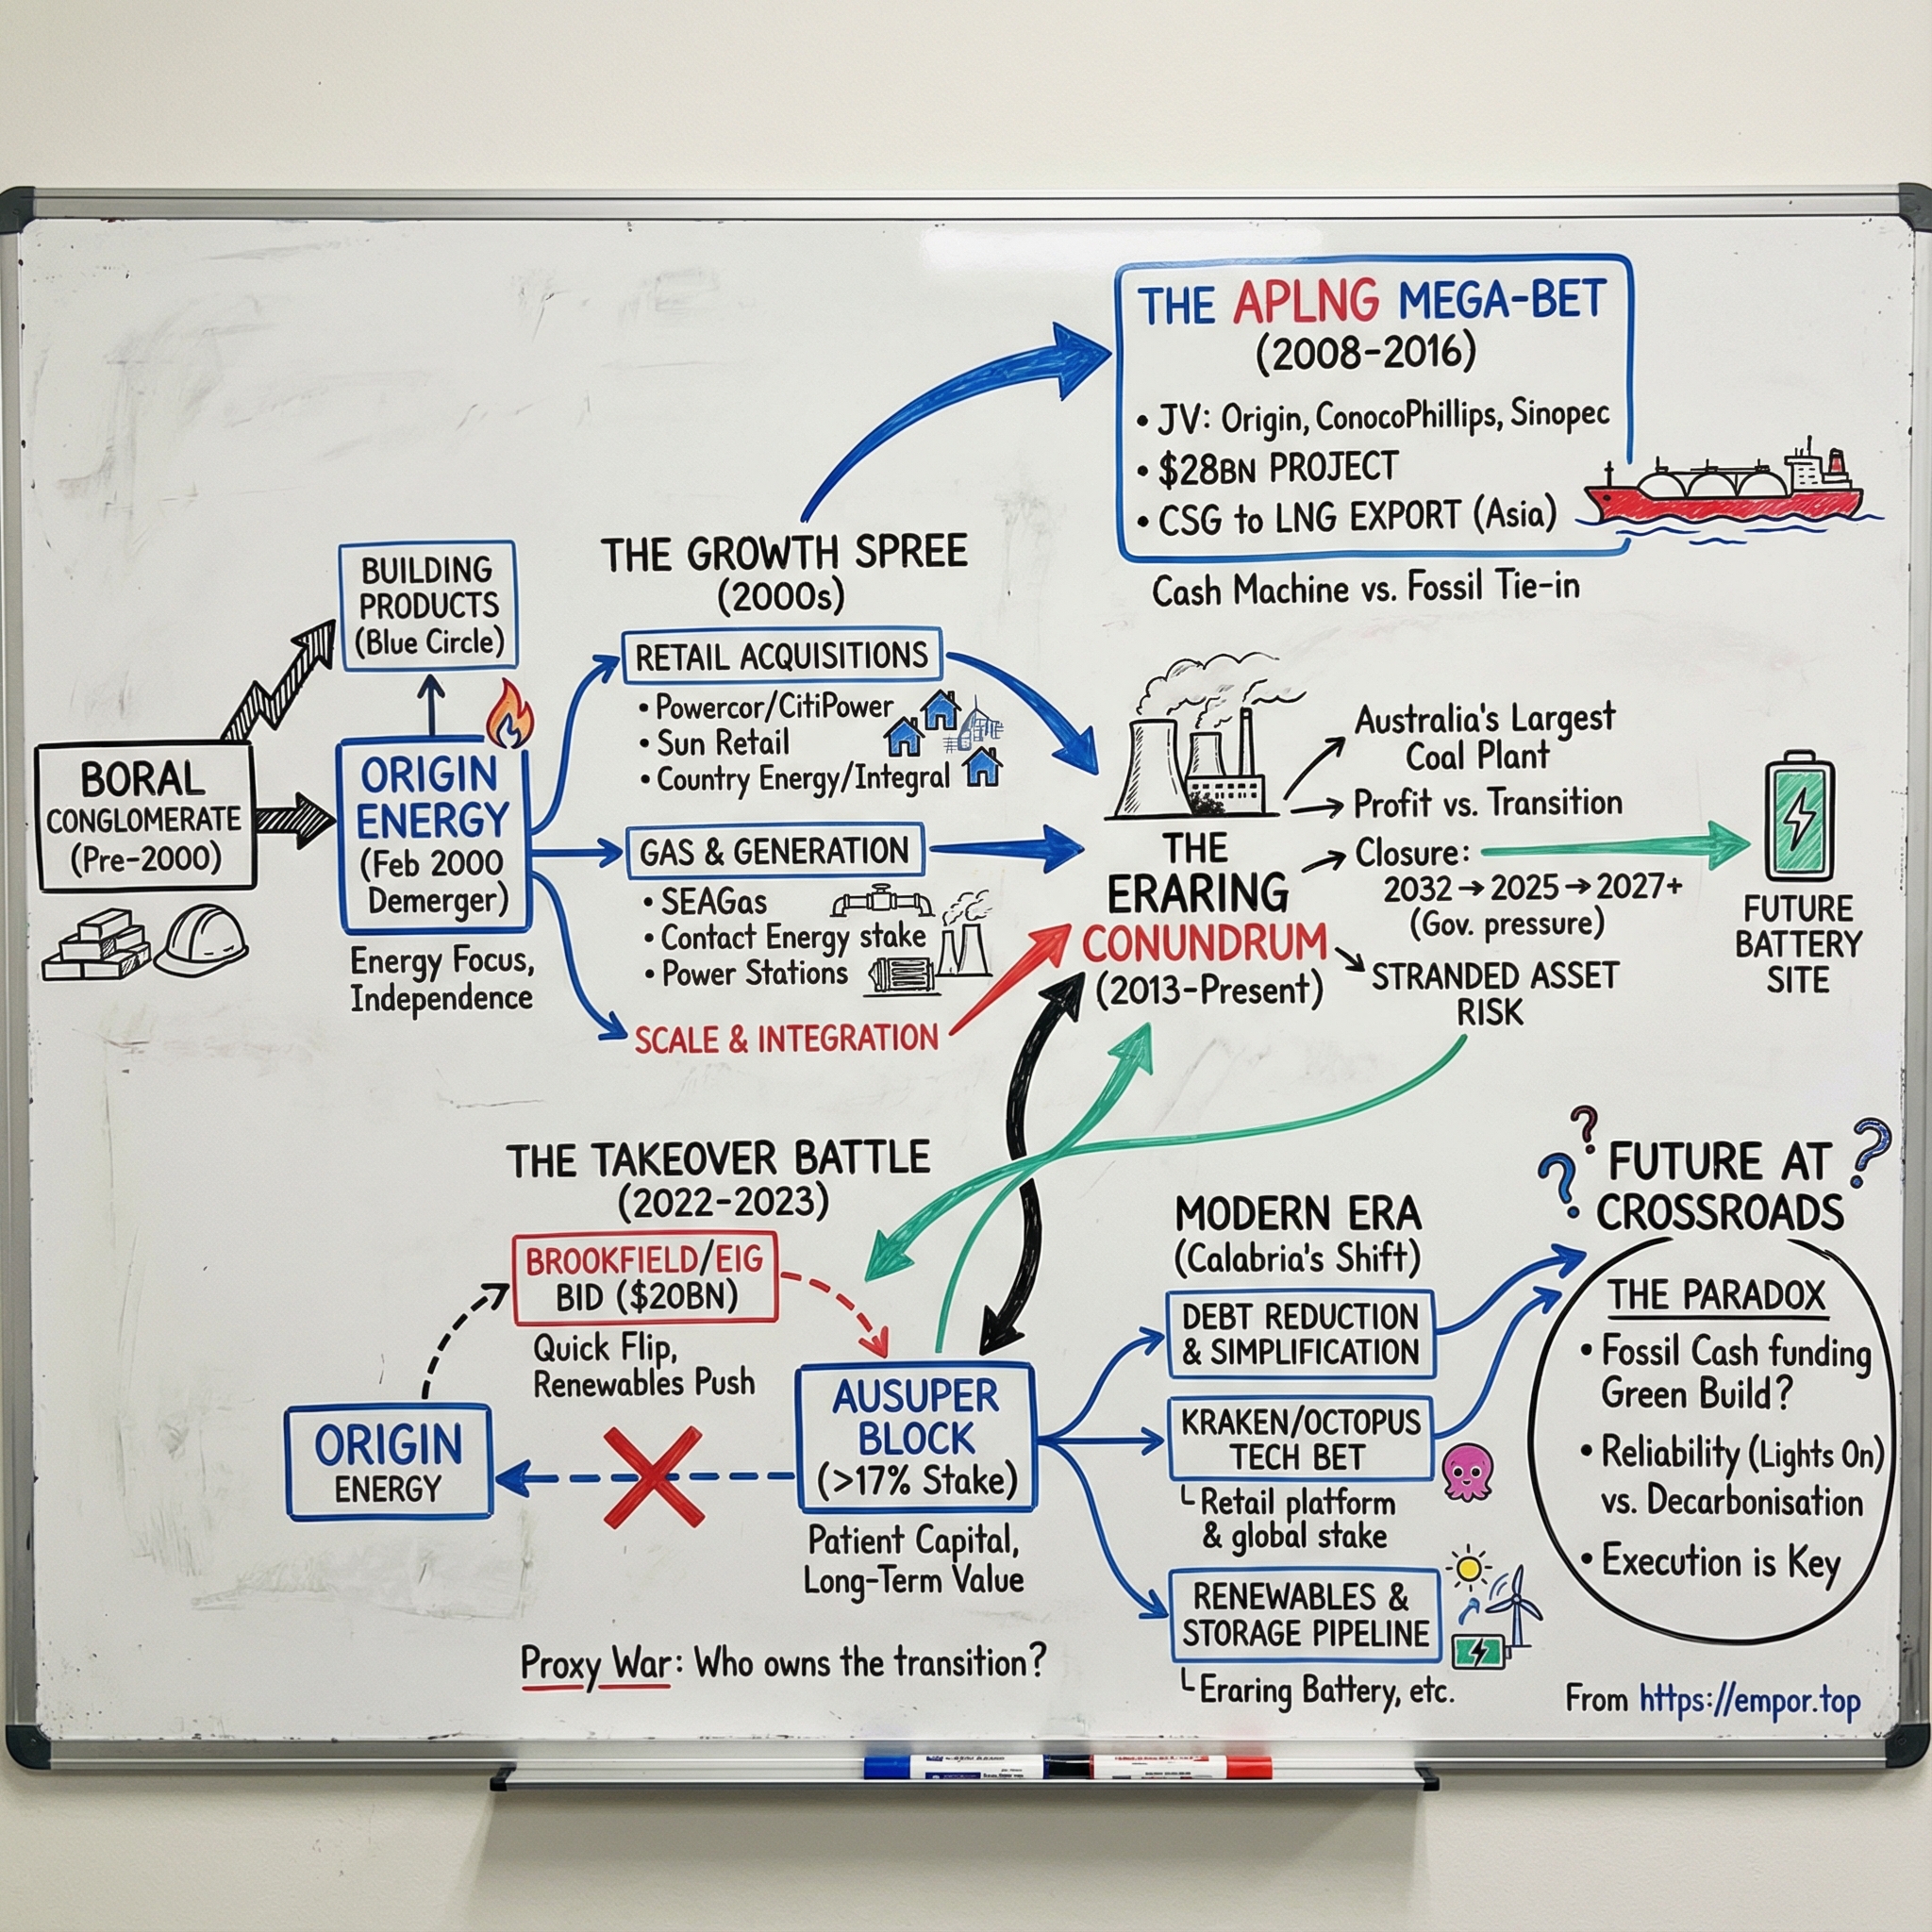 THE APLNG MEGA-BET
(2008-2016)
• JV: Origin, ConocoPhillips, Sinopec
• $28BN PROJECT
• CSG to LNG EXPORT (Asia)
Cash Machine vs. Fossil Tie-in
BUILDING
PRODUCTS
(Blue Circle)
BORAL
CONGLOMERATE
(Pre-2000)
ORIGIN
ENERGY
(Feb 2000
Demerger)
Energy Focus,
Independence
THE GROWTH SPREE
(2000s)
RETAIL ACQUISITIONS
• Powercor/CitiPower
• Sun Retail
• Country Energy/Integral
GAS & GENERATION
• SEAGas
• Contact Energy stake
• Power Stations
SCALE & INTEGRATION
THE
ERARING
CONUNDRUM
(2013-Present)
Australia's Largest
Coal Plant
Profit vs. Transition
Closure:
2032→2025→2027+
(Gov. pressure)
STRANDED ASSET
RISK
FUTURE
BATTERY
SITE
THE TAKEOVER BATTLE
(2022-2023)
BROOKFIELD/EIG
BID ($20BN)
Quick Flip,
Renewables Push
ORIGIN
ENERGY
AUSUPER
BLOCK
(>17% Stake)
Patient Capital,
Long-Term Value
Proxy War: Who owns the transition?
MODERN ERA
(Calabria's Shift)
DEBT REDUCTION
& SIMPLIFICATION
KRAKEN/OCTOPUS
TECH BET
└ Retail platform
& global stake
RENEWABLES &
STORAGE PIPELINE
└ Eraring Battery, etc.
? ? ?
FUTURE AT
CROSSROADS
THE PARADOX
• Fossil Cash funding
Green Build?
• Reliability (Lights On)
vs. Decarbonisation
• Execution is Key
From https://empor.top